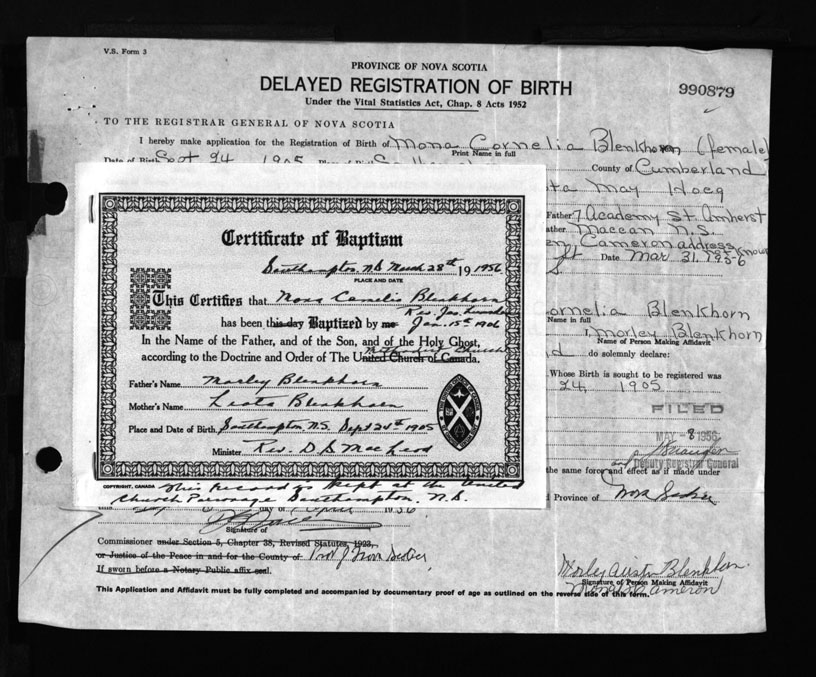 V.S. Form 3
PROVINCE OF NOVA SCOTIA
DELAYED REGISTRATION OF BIRTH
990879
Under the Vital Statistics Act, Chap. 8 Acts 1952
TO THE REGISTRAR GENERAL OF NOVA SCOTIA
I hereby make application for the Registration of Birth of Mona Cornelia Blenkhorn (female)
Print Name in full
Date of Birth Sept 24 1905 County of Cumberland
May Hoeg
Father 7 Academy St. Amherst
Maccan N.S.
Cameron address
Date Mar 31, 1956
Certificate of Baptism
Southampton, N.S. March 28th 1956
PLACE AND DATE
This Certifies that Mona Cornelia Blenkhorn
Rev. Jas.
has been this day Baptized by me Jan. 15th 1906
In the Name of the Father, and of the Son, and of the Holy Ghost,
Methodist Church
according to the Doctrine and Order of The United Church of Canada.
Father's Name Morley Blenkhorn
Mother's Name Leota Blenkhorn
Place and Date of Birth Southampton N.S. Sept 24th 1905
Minister Rev. D S MacLeod
COPYRIGHT, CANADA
This record is kept at the United
Church Parsonage Southampton, N.S.
Cornelia Blenkhorn
Name in full
I, Morley Blenkhorn
Name of Person Making Affidavit
do solemnly declare:
Whose Birth is sought to be registered was
24, 1905
FILED
MAY - 8 1956
and Deputy Registrar General
the same force and effect as if made under
Province of Nova Scotia
this day of April 1956
Signature of
Commissioner under Section 5, Chapter 38, Revised Statutes, 1923,
or Justice of the Peace in and for the County of Prov of Nova Scotia
If sworn before a Notary Public affix seal.
Morley Austin Blenkhorn
Signature of Person Making Affidavit
Mona Cameron
This Application and Affidavit must be fully completed and accompanied by documentary proof of age as outlined on the reverse side of this form.